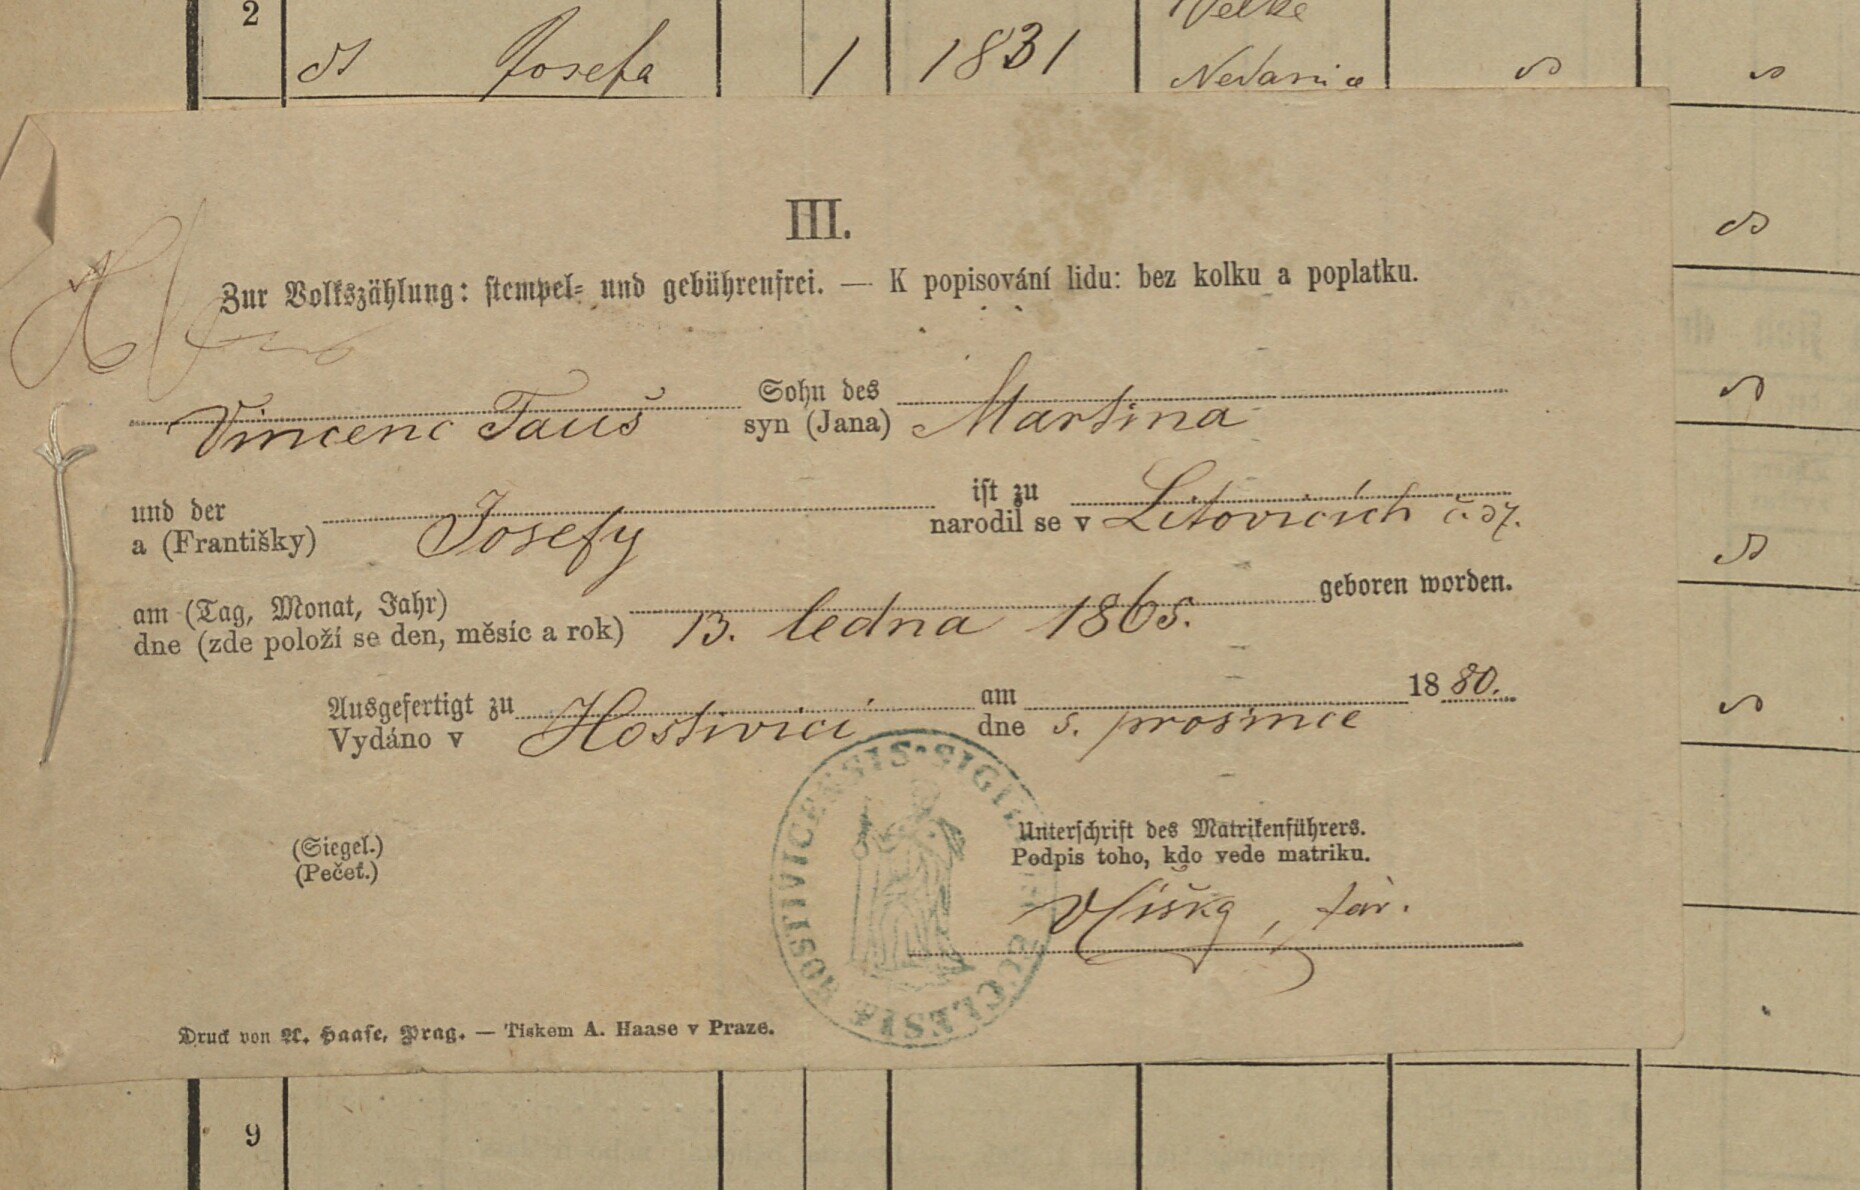 2
Velké
Josefa 1 1831 Nedanice
III.
Zur Volkszählung: stempel- und gebührenfrei. — K popisování lidu: bez kolku a poplatku.
Sohn des
Vincenc Tauš syn (Jana) Martina
und der ist zu
a (Františky) Josefy narodil se v Litovicích č. 37.
am (Tag, Monat, Jahr) geboren worden.
dne (zde položí se den, měsíc a rok) 13. ledna 1865.
Ausgefertigt zu am 1880.
Vydáno v Hostivici dne 5. prosince
SIGIL ECCLESIÆ HOSTIVICENSIS
(Siegel.)
(Pečeť.)
Unterschrift des Matrikenführers.
Podpis toho, kdo vede matriku.
far.
Druck von A. Haase, Prag. — Tiskem A. Haase v Praze.
9